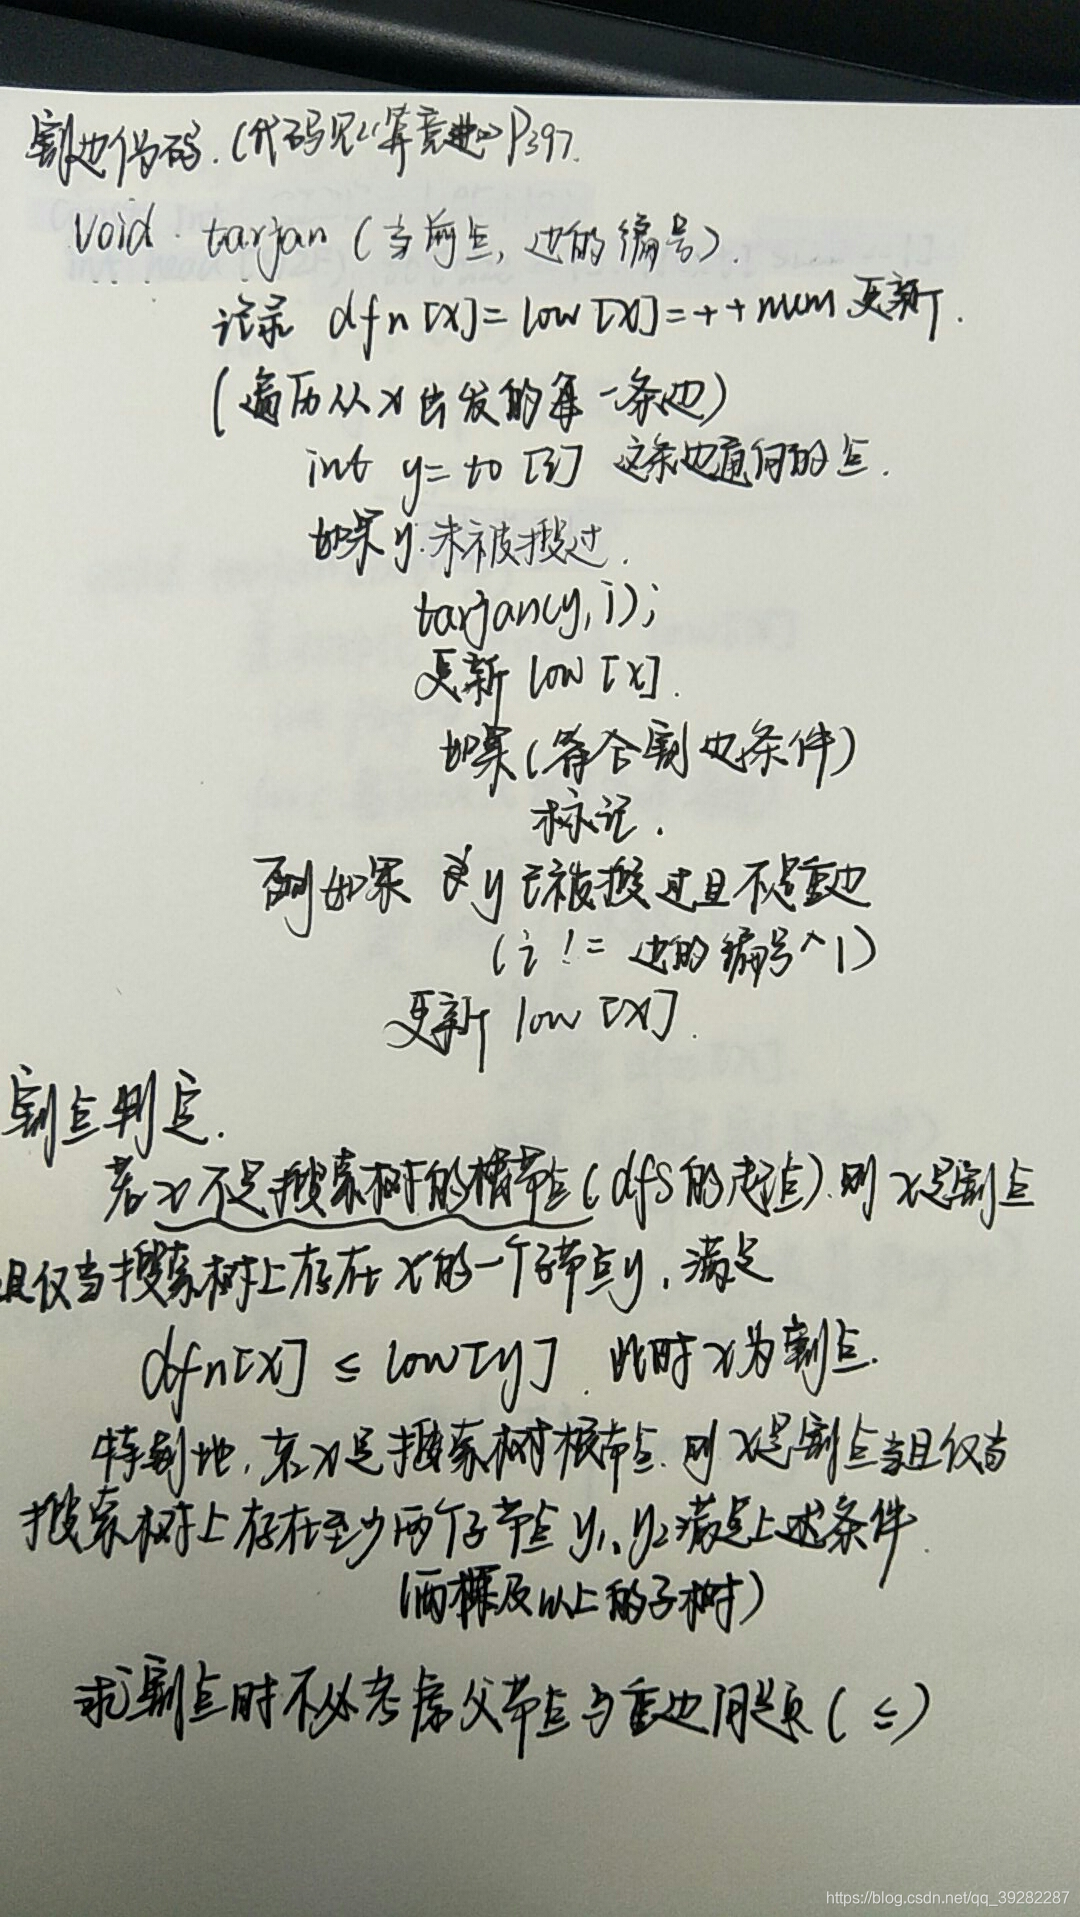 割边伪码.(代码见《算竞进》P397.
void tarjan(当前点,边的编号).
记录 dfn[x]=low[x]=++num 更新.
(遍历从x出发的每一条边)
int y=to[i] 这条边通向的点.
如果y未被搜过.
tarjan(y,i);
更新 low[x].
如果(符合割边条件)
标记.
否则如果 y已被搜过且不是重边
(i != 边的编号^1)
更新 low[x].
割点判定.
若x不是搜索树的根节点(dfs的起点).则x是割点
且仅当搜索树上存在x的一个子节点y,满足
dfn[x] ≤ low[y]. 此时x为割点.
特别地,若x是搜索树根节点.则x是割点当且仅当
搜索树上存在至少两个子节点y1,y2满足上述条件.
(两棵及以上的子树)
求割点时不必考虑父节点与重边问题(≤)
https://blog.csdn.net/qq_39282287